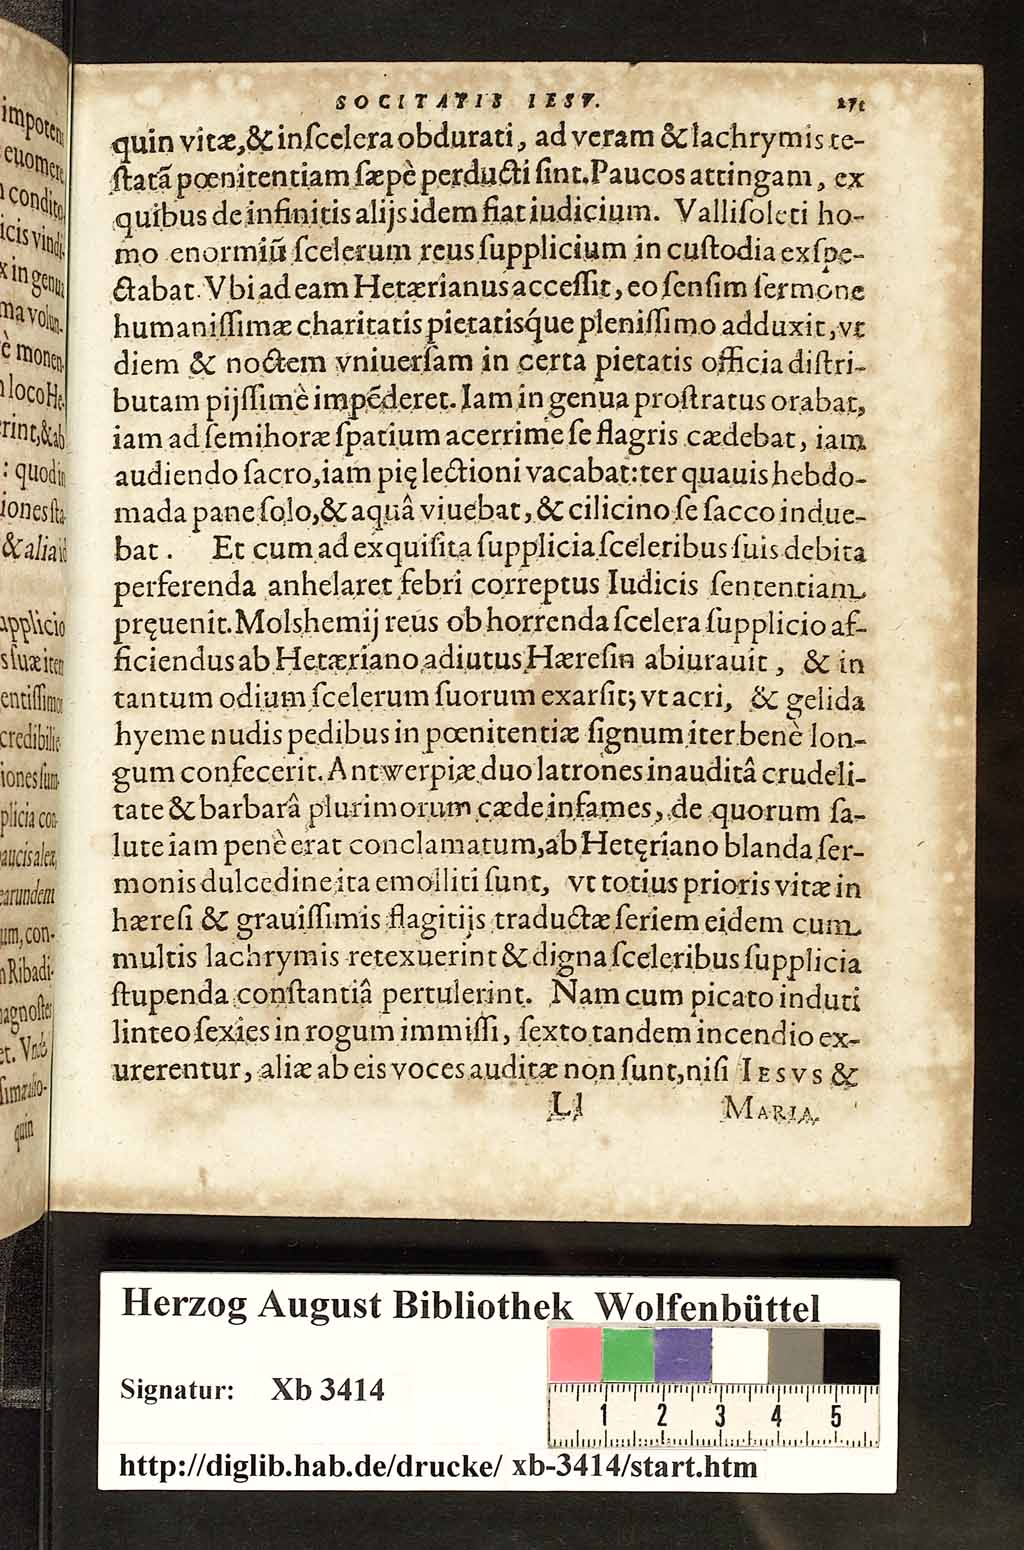 impoten
euomere
condito
icis vindi-
x in genua
ma volun-
è monen-
loco He-
rint,&ab
: quod in
iones sta-
& alia id
applicio
s suæ item
entissimor
credibilie
iones sum-
plicia con-
aucis alex,
earundem
um, con-
n Ribadi-
agnoste
et. Vnde
quin
SOCITATIS IESV. 271
quin vitæ,& inſcelera obdurati, ad veram & lachrymis te-
ſtatã pœnitentiam ſæpè perducti ſint. Paucos attingam, ex
quibus de infinitis alijs idem fiat iudicium. Valliſoleti ho-
mo enormiũ ſcelerum reus ſupplicium in cuſtodia exſpe-
ctabat. Vbi ad eam Hetærianus acceſſit, eo ſenſim ſermone
humaniſſimæ charitatis pietatisq́ue pleniſſimo adduxit, vt
diem & noctem vniuerſam in certa pietatis officia diſtri-
butam pijſſimè impẽderet. Iam in genua proſtratus orabat,
iam ad ſemihoræ ſpatium acerrime ſe flagris cædebat, iam
audiendo ſacro, iam pię lectioni vacabat: ter quauis hebdo-
mada pane ſolo, & aquâ viuebat, & cilicino ſe ſacco indue-
bat. Et cum ad exquiſita ſupplicia ſceleribus ſuis debita
perferenda anhelaret febri correptus Iudicis ſententiam
pręuenit. Molshemij reus ob horrenda ſcelera ſupplicio af-
ficiendus ab Hetæriano adiutus Hæreſin abiurauit, & in
tantum odium ſcelerum ſuorum exarſit; vt acri, & gelida
hyeme nudis pedibus in pœnitentiæ ſignum iter benè lon-
gum confecerit. Antwerpiæ duo latrones inauditâ crudeli-
tate & barbarâ plurimorum cæde infames, de quorum ſa-
lute iam penè erat conclamatum, ab Hetęriano blanda ſer-
monis dulcedine ita emolliti ſunt, vt totius prioris vitæ in
hæreſi & grauiſſimis flagitijs traductæ ſeriem eidem cum
multis lachrymis retexuerint & digna ſceleribus ſupplicia
ſtupenda conſtantiâ pertulerint. Nam cum picato induti
linteo ſexies in rogum immiſſi, ſexto tandem incendio ex-
urerentur, aliæ ab eis voces auditæ non ſunt, niſi IESVS &
Ll MARIA
Herzog August Bibliothek Wolfenbüttel
Signatur: Xb 3414
1 2 3 4 5
http://diglib.hab.de/drucke/ xb-3414/start.htm